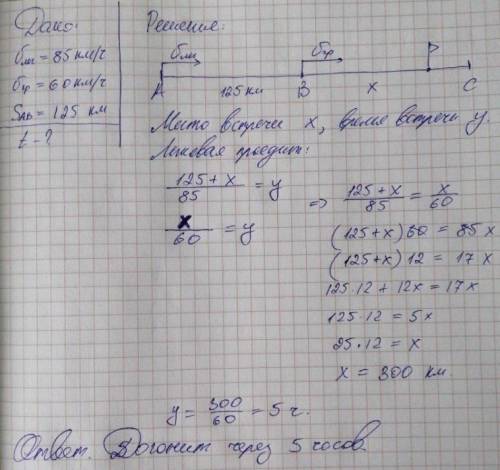 Дано:
υлег = 85 км/ч
υгр = 60 км/ч
SAB = 125 км
t - ?
Решение:
υлег υгр P
A 125 км B x C
Место встречи x, время встречи y.
Легковая проедет:
(125 + x)/85 = y
x/60 = y
=> (125 + x)/85 = x/60
(125 + x) 60 = 85 x
(125 + x) 12 = 17 x
125 · 12 + 12x = 17x
125 · 12 = 5x
25 · 12 = x
x = 300 км.
y = 300/60 = 5 ч.
Ответ. Догонит через 5 часов.